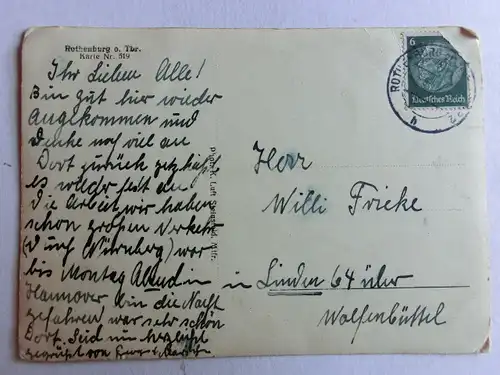 Rothenburg o. Tbr.
Karte Nr. 519
Ihr Lieben Alle!
Bin gut hier wieder
angekommen und
denke noch viel an
Dort zurück jetzt heißt
es wieder fest an
die Arbeit wir haben
schon großen Verkehr
(durch Nürnberg) war
bis Montag Abend in
Hannover bin die Nacht
gefahren war sehr schön
Dort. Seid nun herzlichst
gegrüßt von
6
Deutsches Reich
ROTHENBURG
Herr
Willi Fricke
in Linden 64 über
Wolfenbüttel